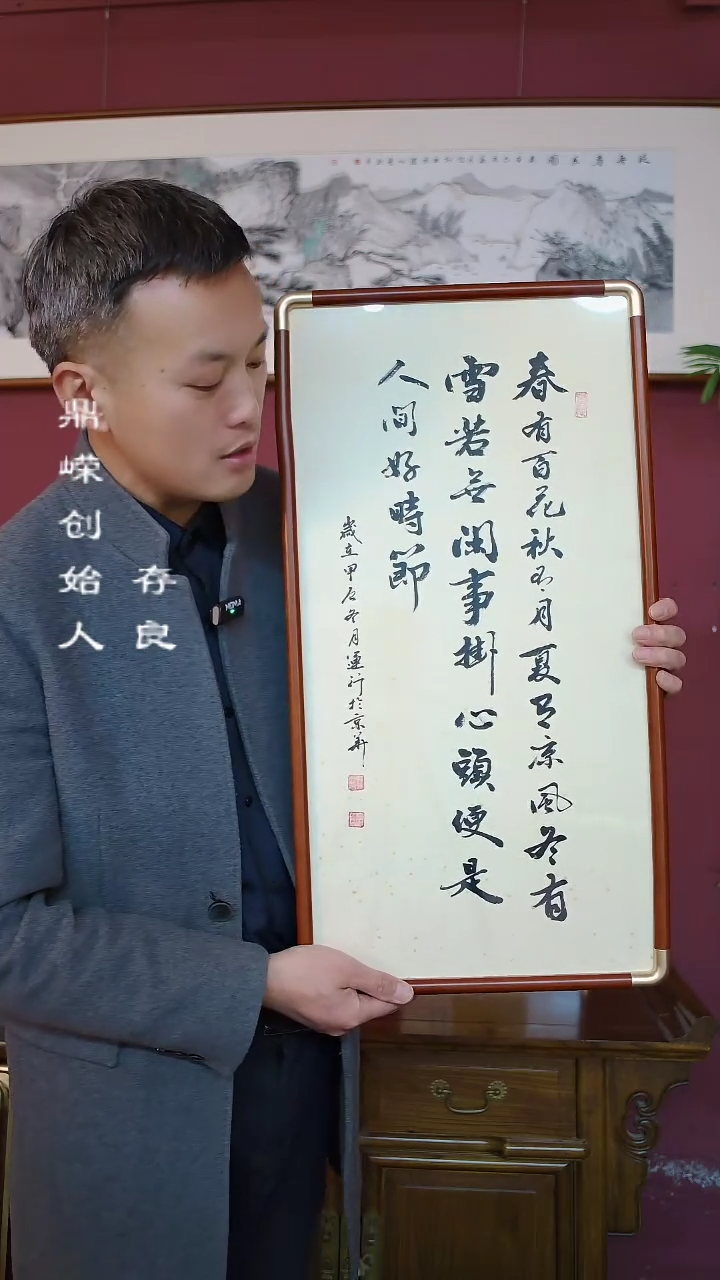 春有百花秋有月夏有凉風冬有
雪若無閑事掛心頭便是
人間好時節
歲在甲辰冬月蓮行於京華
鼎嵘创始人
存良